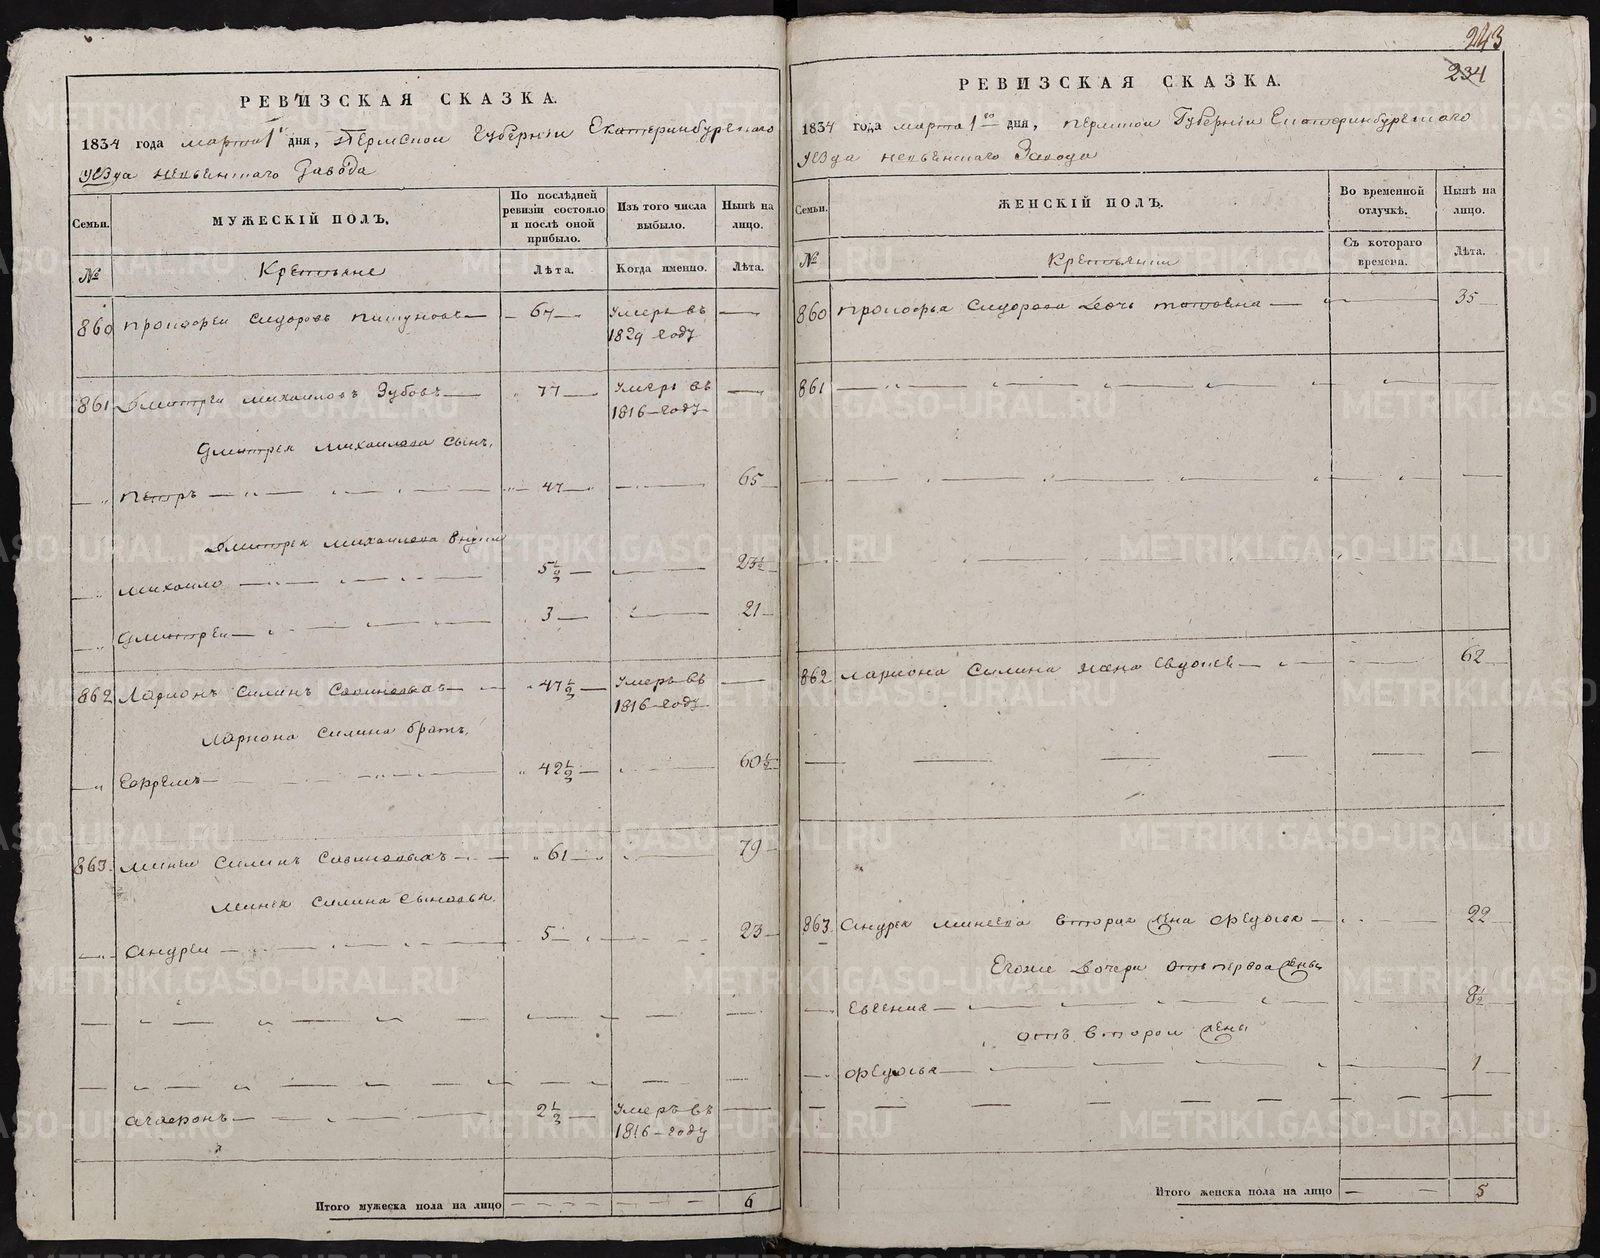 РЕВИЗСКАЯ СКАЗКА.
1834 года марта 1 дня, Пермской Губернїи Екатеринбургскаго
уезда невьенскаго Завода
Семьи.
МУЖЕСКІЙ ПОЛЪ.
По послѣдней ревизіи состояло и послѣ оной прибыло.
Изъ того числа выбыло.
Нынѣ на лицо.
№
Крестьяне
Лѣта.
Когда именно.
Лѣта.
860 Прокофеи Сидоровъ 67 Умеръ въ
1829 году
861 Дмитреи михаиловъ Зубовъ 77 Умеръ въ
1816 году
Дмитрея михаилова сынъ,
Петръ 47 65
Дмитрея михаилова внуки
михаило 5 1/2 23 1/2
Дмитреи 3 21
862 Ларионъ Силинъ 47 1/2 Умеръ въ
1816 году
Лариона Силина братъ,
Ефремъ 42 1/2 60 1/2
863. Минеи Силинъ 61 79
Минея Силина сыновья
Андреи 5 23
Агафонъ 2 1/2 Умеръ въ
1816 году
Итого мужеска пола на лицо 6
243
234
РЕВИЗСКАЯ СКАЗКА.
1834 года марта 1го дня, Пермской Губерніи Екатеринбургскаго
уезда невьенскаго Завода
Семьи.
ЖЕНСКІЙ ПОЛЪ.
Во временной отлучкѣ.
Нынѣ на лицо.
№
Съ котораго времена.
Лѣта.
860 Прокофья Сидорова дочь 35
861
862 Лариона Силина жена 62
863. Андрея минеева вторая жена Федосья 22
Егоже дочери отъ первой жены
Евгения 8 1/2
отъ второй жены
Федосья 1
Итого женска пола на лицо 5
METRIKI.GASO-URAL.RU